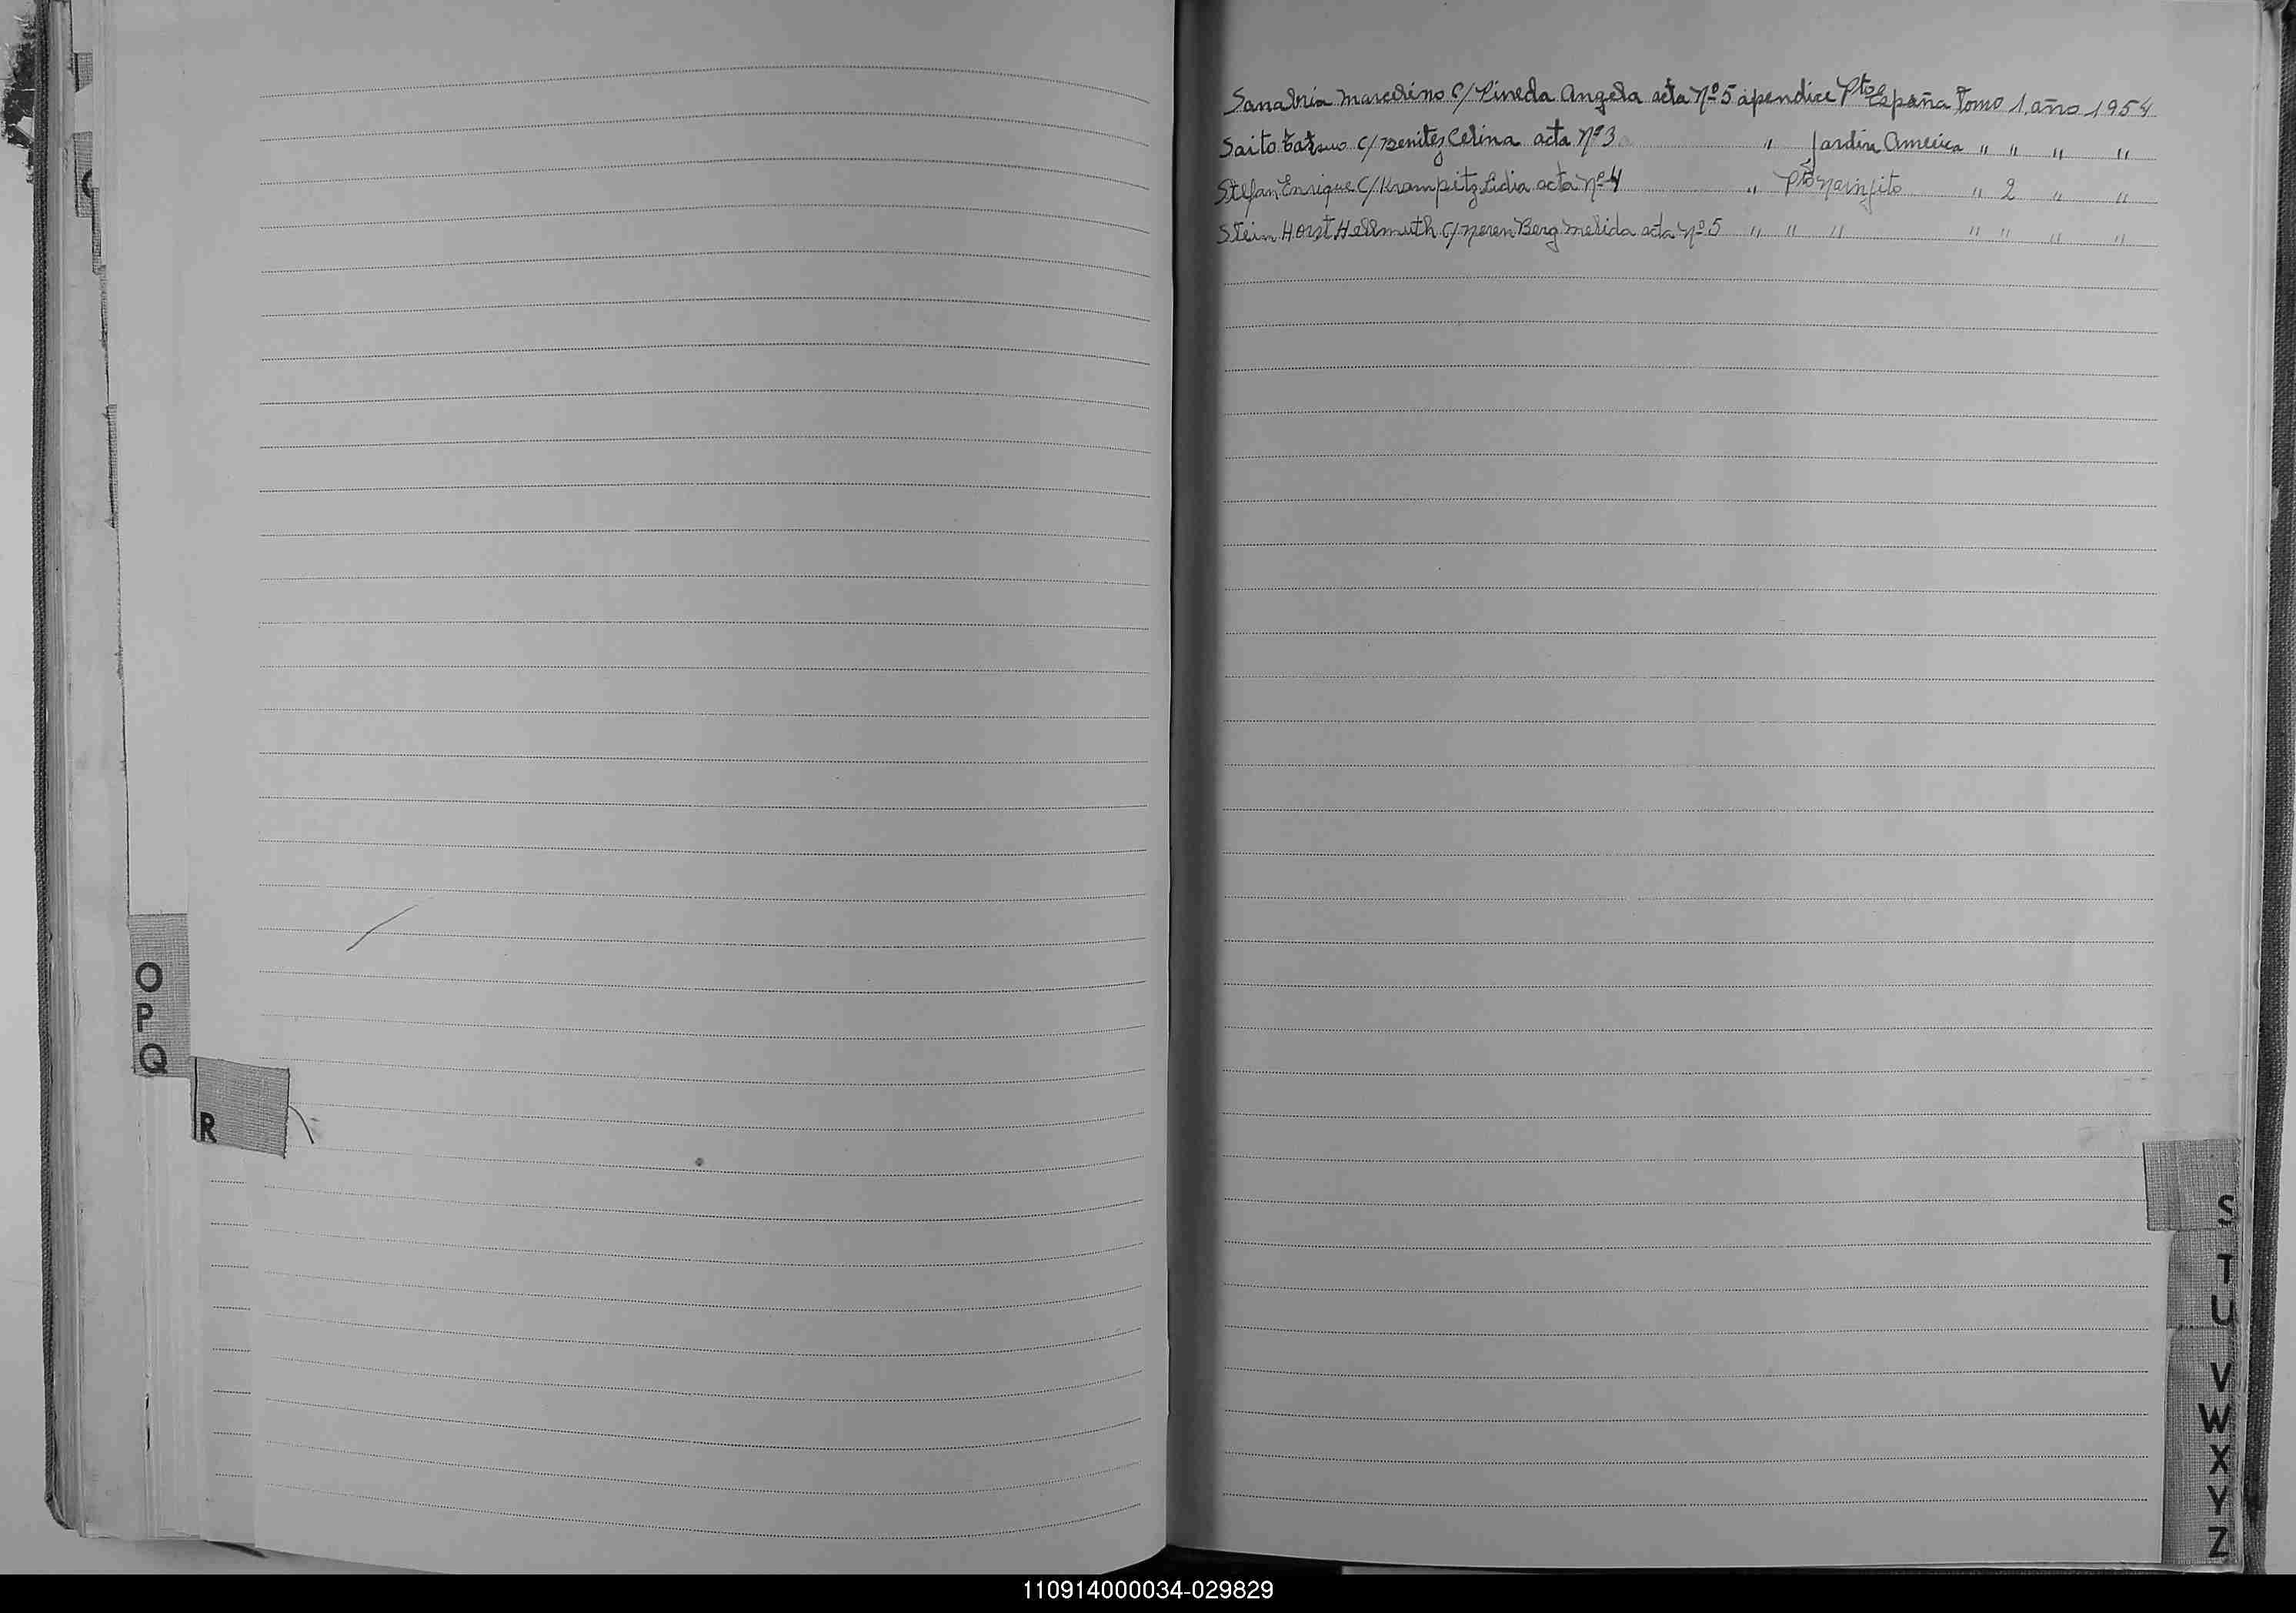 Sanabria Marcelino c/ Pineda Angela acta Nº 5 apendice Pto España Tomo 1 año 1954
Saito Tatsuo c/ Benitez Celina acta Nº 3 " Jardin America " " " "
Stefan Enrique c/ Krampitz Lidia acta Nº 4 " Pto Naranjito " 2 " "
Stein Horst Hellmuth c/ Noren Berg Melida acta Nº 5 " " " " " " "
O
P
Q
R
S
T
U
V
W
X
Y
Z
110914000034-029829